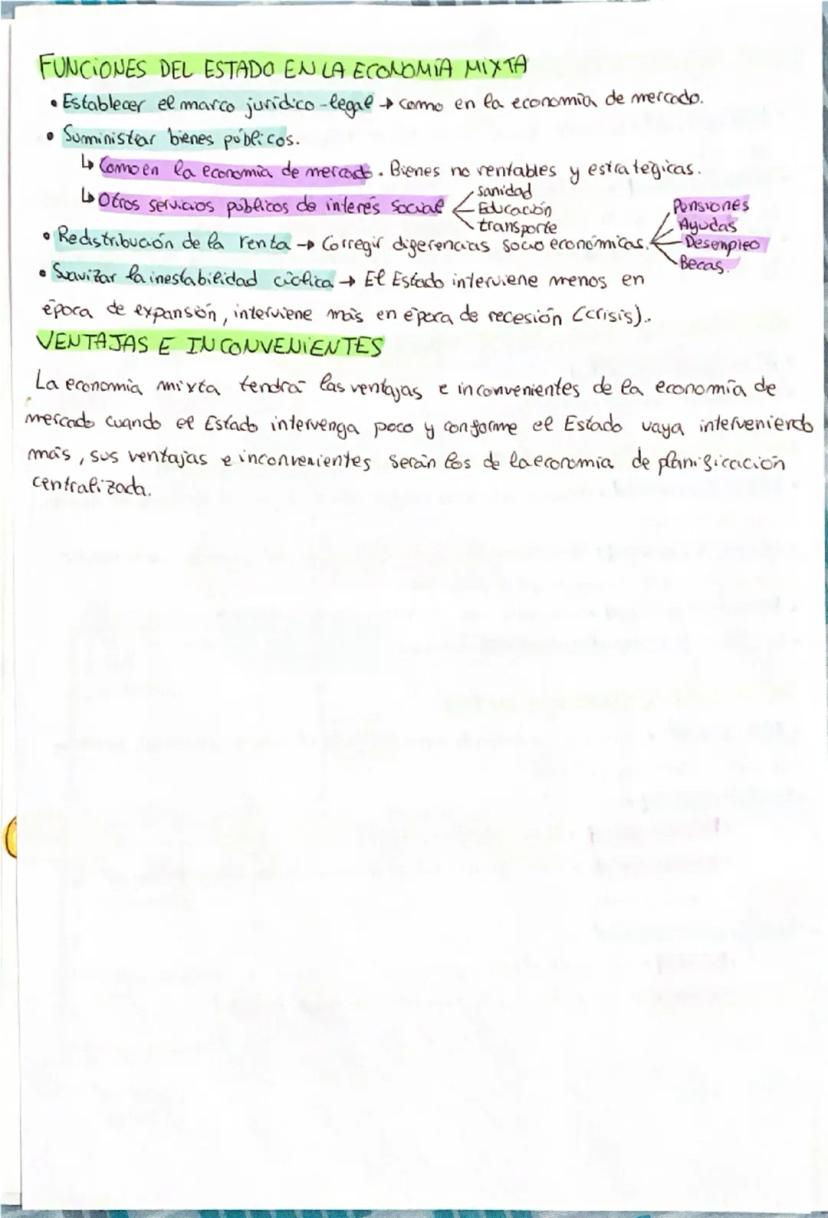 FUNCIONES DEL ESTADO EN LA ECONOMÍA MIXTA
• Establecer el marco jurídico-legal → como en la economía de mercado.
• Suministrar bienes públicos.
↳ Como en la economía de mercado. Bienes no rentables y estratégicas.
↳ Otros servicios públicos de interés social
sanidad
Educación
transporte
• Redistribución de la renta → Corregir digerencias socio económicas.
Pensiones
Ayudas
Desempleo
Becas.
• Suavizar la inestabilidad cíclica → El Estado interviene menos en
época de expansión, interviene más en época de recesión (crisis).
VENTAJAS E INCONVENIENTES
La economía mixta tendrá las ventajas e inconvenientes de la economía de
mercado cuando el Estado intervenga poco y conforme el Estado vaya interviniendo
más, sus ventajas e inconvenientes serán los de la economía de planificación
centralizada.